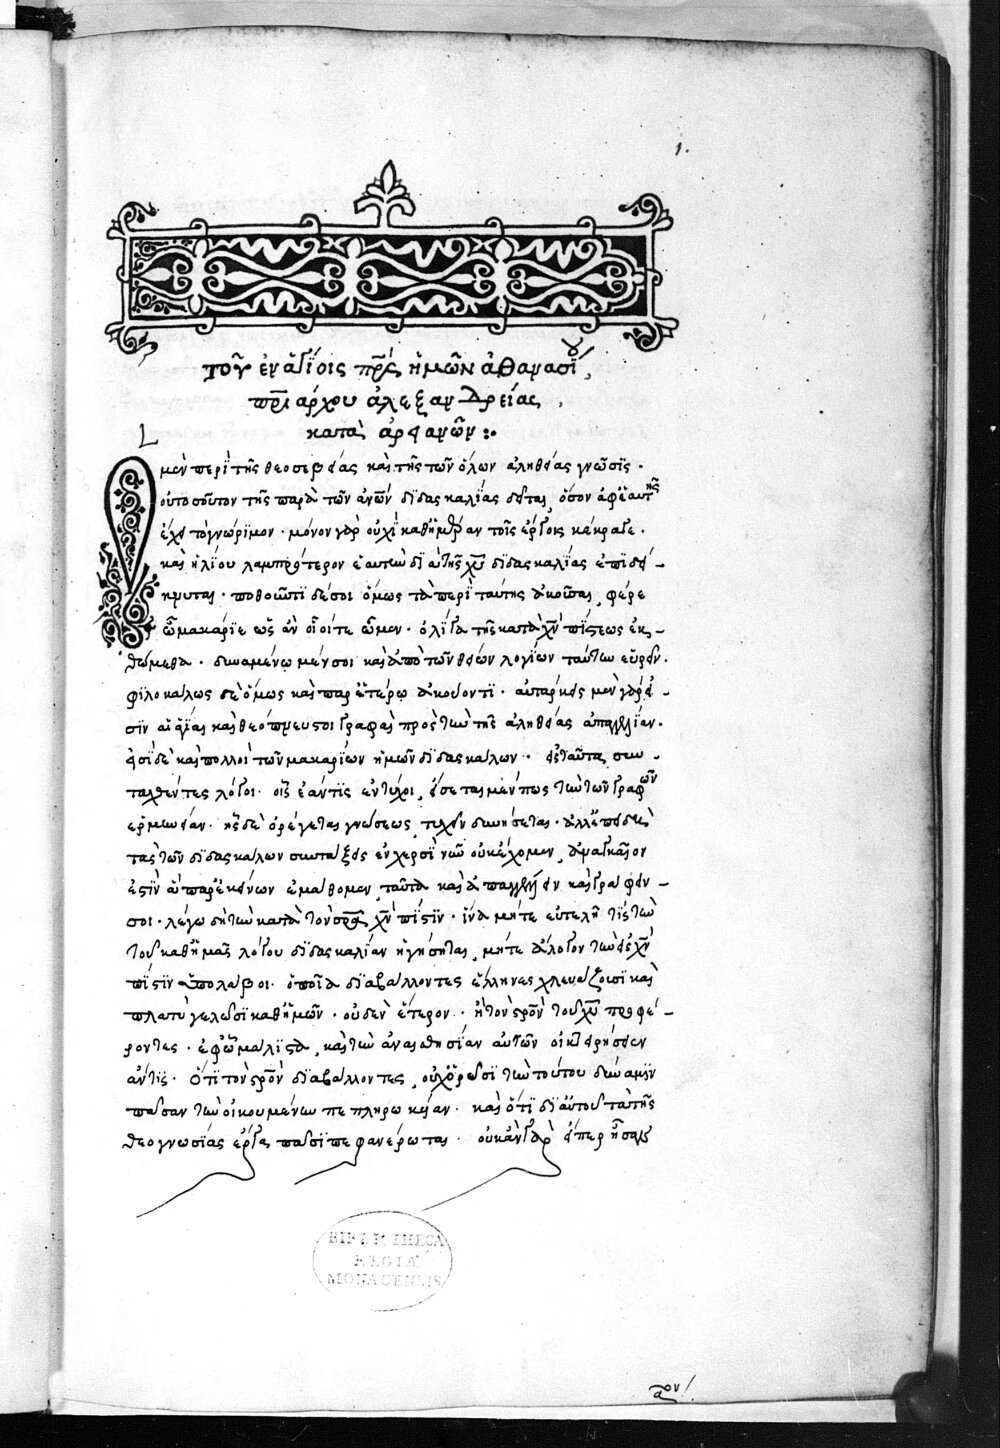 1.
τοῦ ἐν ἁγίοις πρς ἡμῶν ἀθανασίου,
πριάρχου ἀλεξανδρείας,
κατὰ ἀρειανῶν :·
μὲν περὶ τῆς θεοσεβείας καὶ τῆς τῶν ὅλων ἀληθείας γνῶσις·
οὐ τοσοῦτον τῆς παρὰ τῶν ἀνων διδασκαλίας δεῖται, ὅσον ἀφ' ἑαυτῆς
ἔχει τὸ γνώριμον· μόνον γὰρ οὐχὶ καθημέραν τοῖς ἔργοις κέκραγε·
καὶ ἡλίου λαμπρότερον ἑαυτὴν διὰ τῆς χυ διδασκαλίας ἐπιδεί-
κνυται· ποθοῦντι δέ σοι ὅμως τὰ περὶ ταύτης ἀκοῦσαι, φέρε
ὦ μακάριε ὡς ἂν οἷοί τε ὦμεν· ὀλίγα τῆς κατὰ χν πίστεως ἐκ-
θώμεθα· δυναμένω μέν σοι καὶ ἀπὸ τῶν θείων λογίων ταύτην εὑρεῖν·
φιλοκάλως δὲ ὅμως καὶ παρ' ἑτέρω ἀκούοντι· αὐτάρκεις μὲν γὰρ εἰ-
σὶν αἱ ἅγιαι καὶ θεόπνευστοι γραφαὶ πρὸς τὴν τῆς ἀληθείας ἀπαγγελίαν·
εἰσὶ δὲ καὶ πολλοὶ τῶν μακαρίων ἡμῶν διδασκάλων· εἰς ταῦτα συν-
ταχθέντες λόγοι· οἷς ἐάν τις ἐντύχοι, εἴσεται μέν πως τὴν τῶν γραφῶν
ἑρμηνείαν· ἧς δὲ ὀρέγεται γνώσεως, τυχεῖν δυνήσεται· ἀλλ' ἐπειδὴ
τὰς τῶν διδασκάλων συντάξεις ἐν χερσὶ νῦν οὐκ ἔχομεν, ἀναγκαῖον
ἐστὶν ἃ παρ' ἐκείνων ἐμάθομεν, ταῦτα καὶ ἀπαγγέλλειν καὶ γράφειν
σοι· λέγω δὴ τὴν κατὰ τὸν σρα χν πίστιν· ἵνα μήτε εὐτελῆ τίς τὴν
τοῦ καθ' ἡμᾶς λόγου διδασκαλίαν ἡγήσηται, μήτε ἄλογον τὴν εἰς χν
πίστιν ὑπολάβοι· ὁποῖα διαβάλλοντες ἕλληνες χλευάζουσι καὶ
πλατὺ γελῶσι καθ' ἡμῶν· οὐδὲν ἕτερον· ἢ τὸν σρον τοῦ χυ προφέ-
ροντες· ἐφ' ᾧ μάλιστα, καὶ τὴν ἀναισθησίαν αὐτῶν οἰκτειρήσειεν
ἄν τις· ὅτι τὸν σρον διαβάλλοντες, οὐχ ὁρῶσι τὴν τούτου δύναμιν
πᾶσαν τὴν οἰκουμένην πεπληρωκυῖαν· καὶ ὅτι δι' αὐτοῦ τὰ τῆς
θεογνωσίας ἔργα πᾶσι πεφανέρωται· οὐκ ἂν γὰρ εἴπερ ἦσαν
BIBLIOTHECA
REGIA
MONACENSIS